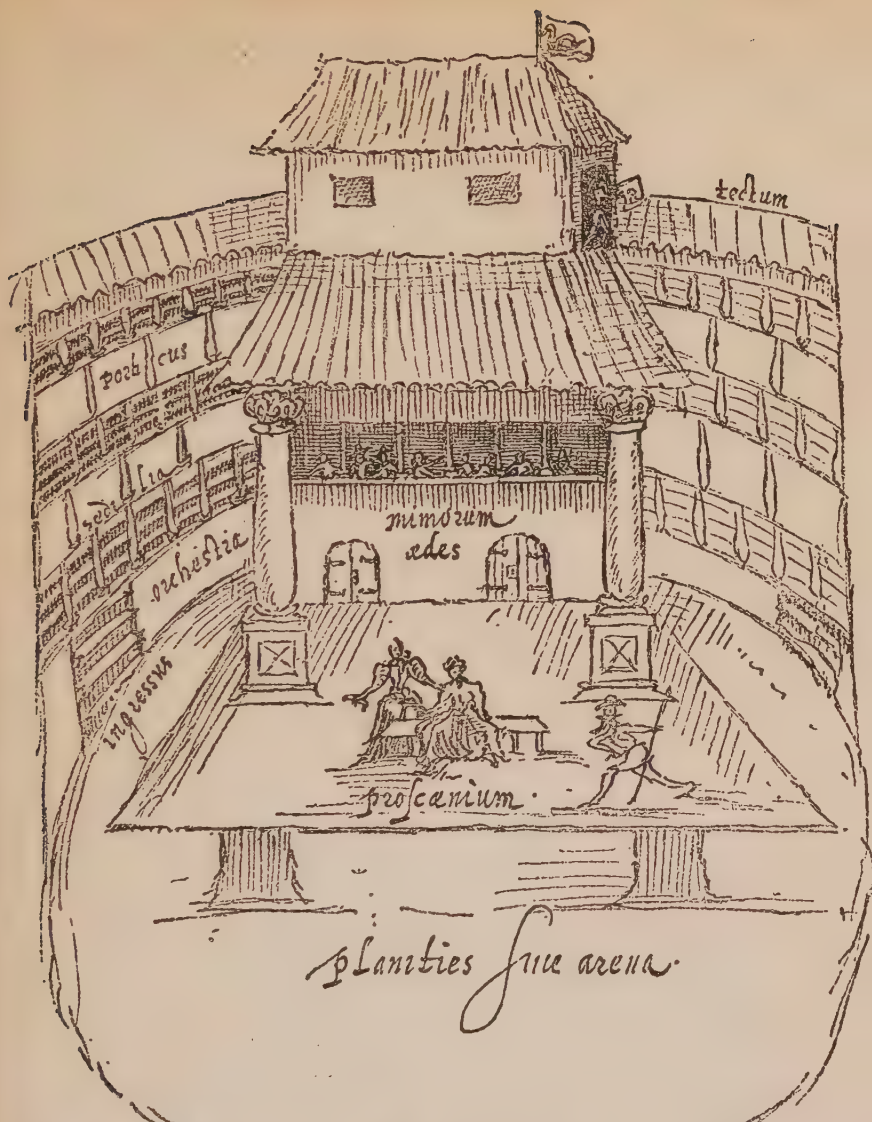 tectum
porticus
sedilia
orchestra
mimorum
ædes
ingressus
proscænium.
planities sive arena.